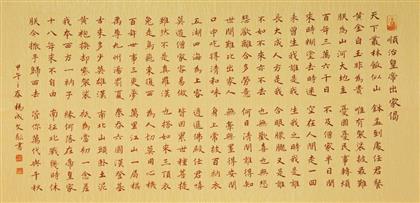 順治皇帝出家偈
天下叢林飯似山 鉢盂到處任君餐
黃金白玉非為貴 惟有袈裟披最難
朕為山河大地主 憂國憂民事轉煩
百年三萬六千日 不及僧家半日閒
來時糊塗去時迷 空在人間走一回
未曾生我誰是我 生我之時我是誰
長大成人方是我 合眼朦朧又是誰
不如不來亦不去 也無歡喜也無悲
悲歡離合多勞意 何日清閒誰得知
世間難比出家人 無牽無掛得安閒
口中吃得清和味 身上常披百衲衣
五湖四海為上客 逍遙佛殿任君嘻
莫道僧家容易做 皆因累世種菩提
雖然不是真羅漢 也搭如來三頂衣
兔走烏飛東復西 為人切莫用心機
百年世事三更夢 萬里江山一局棋
禹尊九州湯伐夏 秦吞六國漢登基
古來多少英雄漢 南北山頭臥土泥
黃袍換却紫袈裟 只為當初一念差
我本西方一衲子 緣何落在帝皇家
十八年來不自由 南征北戰幾時休
朕今撒手歸西去 管你萬代與千秋
甲午 楊成文 書